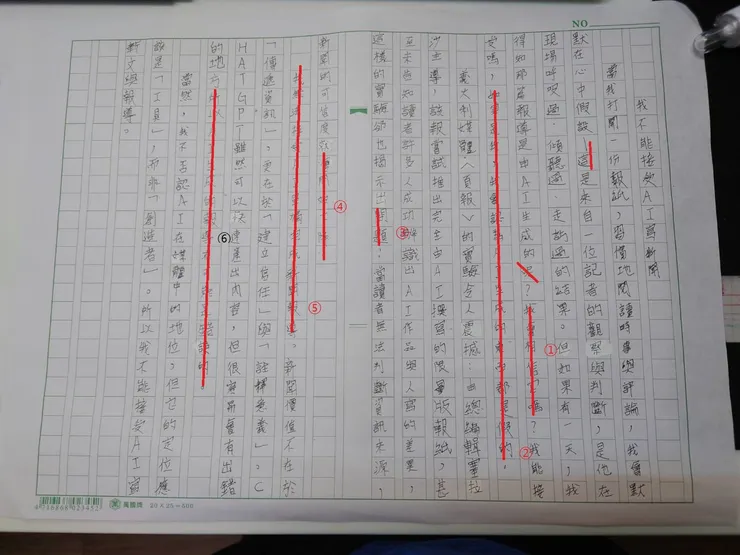 NO
我不能接受AI寫新聞
當我打開一份報紙，習慣地閱讀時事與評論，我會默
默在心中假設——這是來自一位記者的觀察與判斷，是他在
現場呼吸過、傾聽過、走訪過的結果。但如果有一天，我
得知那篇報導是由AI生成的呢？我會相信它嗎？我能接
受嗎，
生成的東西都是假的，
義大利媒體〈頁報〉的實驗令人震撼：由總編輯塞拉
沙主導，該報嘗試推出完全由AI撰寫的限量版報紙，甚
至未告知讀者許多人成功辨識出AI作品與人寫的差異，
這樣的實驗卻也揭示出問題：當讀者無法判斷資訊來源，
新聞的可信度
新聞價值不在於
「傳遞資訊」，更在於「建立信任」與「詮釋意義」。C
HATGPT雖然可以快速產出內容，但很容易會有出錯
的地方
當然，我不否認AI在媒體中的地位，但它的定位應
該是「工具」，而非「創造者」。所以我不能接受AI寫
新文與報導。
①
②
③
④
⑤
⑥
萬國牌
20×25=500